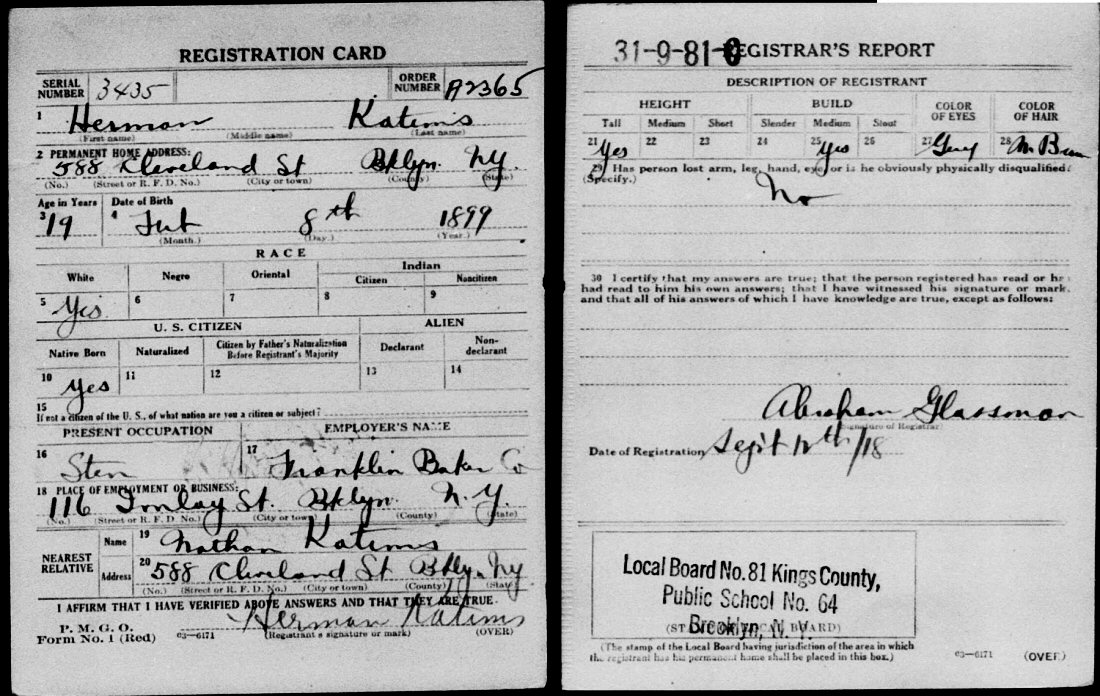 REGISTRATION CARD
SERIAL NUMBER 3435 ORDER NUMBER A2365
1 Herman Katims
(First name) (Middle name) (Last name)
2 PERMANENT HOME ADDRESS:
588 Cleveland St Bklyn. NY.
(No.) (Street or R. F. D. No.) (City or town) (County) (State)
Age in Years Date of Birth
3 19 4 8th 1899
(Month.) (Day.) (Year.)
RACE
White Negro Oriental Indian
Citizen Noncitizen
5 Yes 6 7 8 9
U. S. CITIZEN ALIEN
Native Born Naturalized Citizen by Father's Naturalization Before Registrant's Majority Declarant Non-declarant
10 Yes 11 12 13 14
15
If not a citizen of the U. S., of what nation are you a citizen or subject?
PRESENT OCCUPATION EMPLOYER'S NAME
16 Sten 17 Franklin Baker Co
18 PLACE OF EMPLOYMENT OR BUSINESS:
116 Imlay St. Bklyn. N. Y.
(No.) (Street or R. F. D. No.) (City or town) (County) (State)
NEAREST RELATIVE
Name 19 Nathan Katims
Address 20 588 Cleveland St Bklyn. NY
(No.) (Street or R. F. D. No.) (City or town) (County) (State)
I AFFIRM THAT I HAVE VERIFIED ABOVE ANSWERS AND THAT THEY ARE TRUE.
P. M. G. O.
Form No. 1 (Red) 03—6171 Herman Katims
(Registrant's signature or mark) (OVER)
31-9-81-C REGISTRAR'S REPORT
DESCRIPTION OF REGISTRANT
HEIGHT BUILD COLOR OF EYES COLOR OF HAIR
Tall Medium Short Slender Medium Stout
21 Yes 22 23 24 25 Yes 26 27 Grey 28
29 Has person lost arm, leg, hand, eye, or is he obviously physically disqualified?
(Specify.) No
30 I certify that my answers are true; that the person registered has read or has
had read to him his own answers; that I have witnessed his signature or mark,
and that all of his answers of which I have knowledge are true, except as follows:
Abraham Glassman
(Signature of Registrar)
Date of Registration Sept 12th/18
Local Board No. 81 Kings County,
Public School No. 64
Brooklyn, N. Y.
(STAMP OF LOCAL BOARD)
(The stamp of the Local Board having jurisdiction of the area in which
the registrant has his permanent home shall be placed in this box.)
03—6171 (OVER)